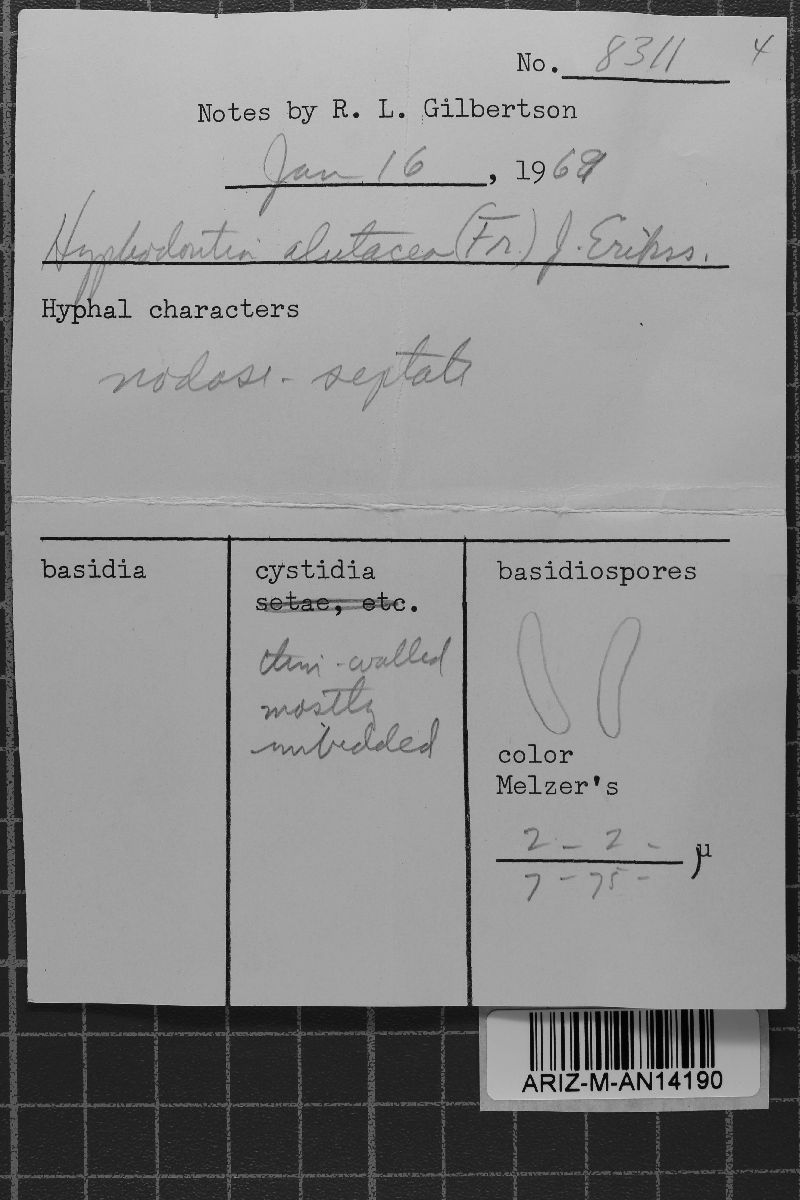 No. 8311 4
Notes by R. L. Gilbertson
Jan 16, 1969
Hyphodontia alutacea (Fr.) J. Erikss.
Hyphal characters
nodose-septate
basidia
cystidia
setae, etc.
thin-walled
mostly
imbedded
basidiospores
color
Melzer's
2 - 2 -
7 - 75 - µ
ARIZ-M-AN14190